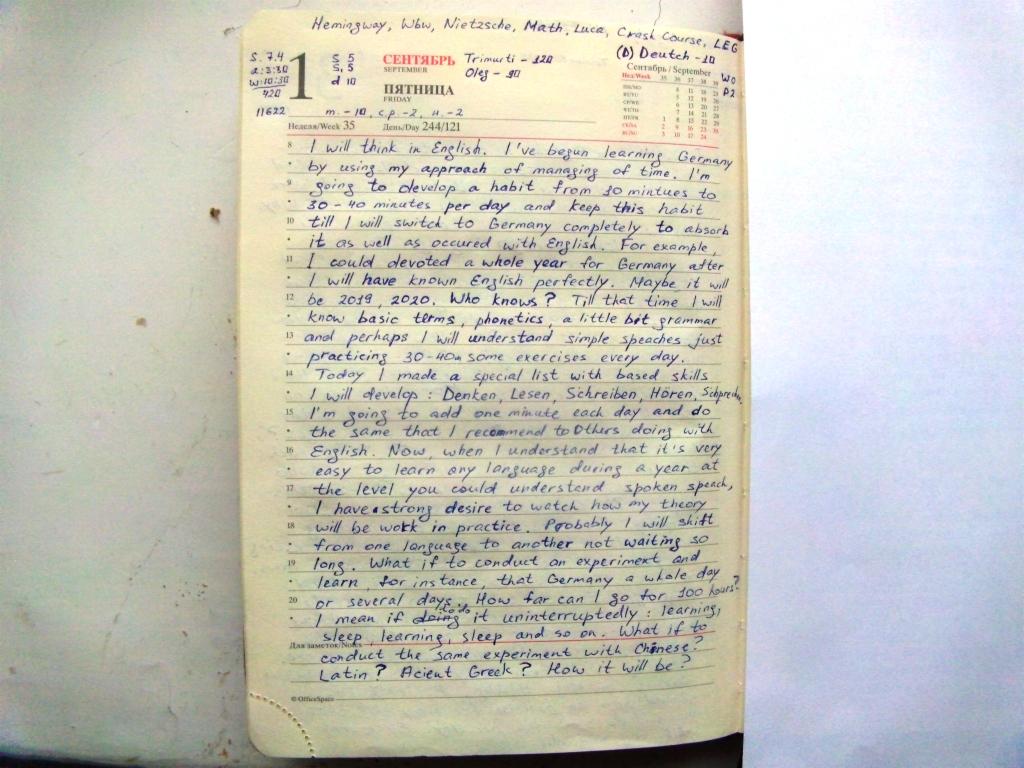 Hemingway, Wbw, Nietzsche, Math, Luca, Crash Course, LEG
(D) Deutch - 10
S. 7.4
a: 3:30
w: 10:30
420
11622
1
S 5
S, 5
d 10
СЕНТЯБРЬ
SEPTEMBER
ПЯТНИЦА
FRIDAY
Trimurti - 120
Oleg - 90
m. - 10, c.p. - 2, н. - 2
Сентябрь / September
Нед/Week 35 36 37 38 39
Неделя/Week 35 День/Day 244/121
8 I will think in English. I've begun learning Germany
by using my approach of managing of time. I'm
9 going to develop a habit from 10 mintues to
30-40 minutes per day and keep this habit
10 till I will switch to Germany completely to absorb
it as well as occured with English. For example,
11 I could devoted a whole year for Germany after
I will have known English perfectly. Maybe it will
12 be 2019, 2020. Who knows? Till that time I will
know basic terms, phonetics, a little bit grammar
13 and perhaps I will understand simple speaches just
practicing 30-40m some exercises every day.
14 Today I made a special list with based skills
I will develop: Denken, Lesen, Schreiben, Hören, Schprechen.
15 I'm going to add one minute each day and do
the same that I recommend to Others doing with
16 English. Now, when I understand that it's very
easy to learn any language during a year at
17 the level you could understand spoken speach,
I have strong desire to watch how my theory
18 will be work in practice. Probably I will shift
from one language to another not waiting so
19 long. What if to conduct an experiment and
learn, for instance, that Germany a whole day
20 or several days. How far can I go for 100 hours?
I mean if to do it uninterruptedly: learning,
sleep, learning, sleep and so on. What if to
Для заметок/Notes
conduct the same experiment with Chinese?
Latin? Acient Greek? How it will be?
© OfficeSpace